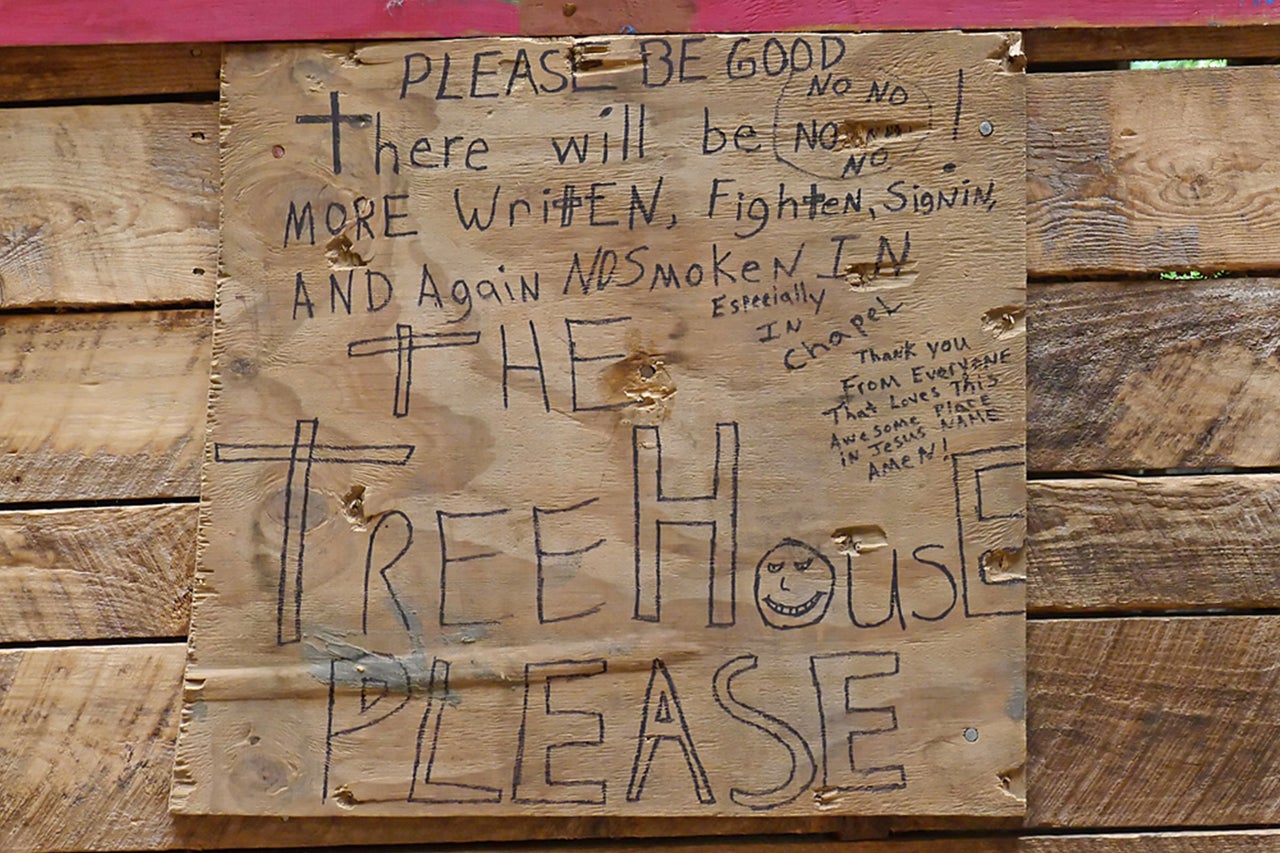 PLEASE BE GOOD
There will be NO NO NO NO !
MORE WriTTEN, FighTeN, SigNiN,
AND Again NO SmokeN IN
Especially
IN
Chapel
THE
Thank you
From EveryONE
That Loves This
Awesome PlacE
iN Jesus NAME
AMeN!
TREEHousE
PLEASE